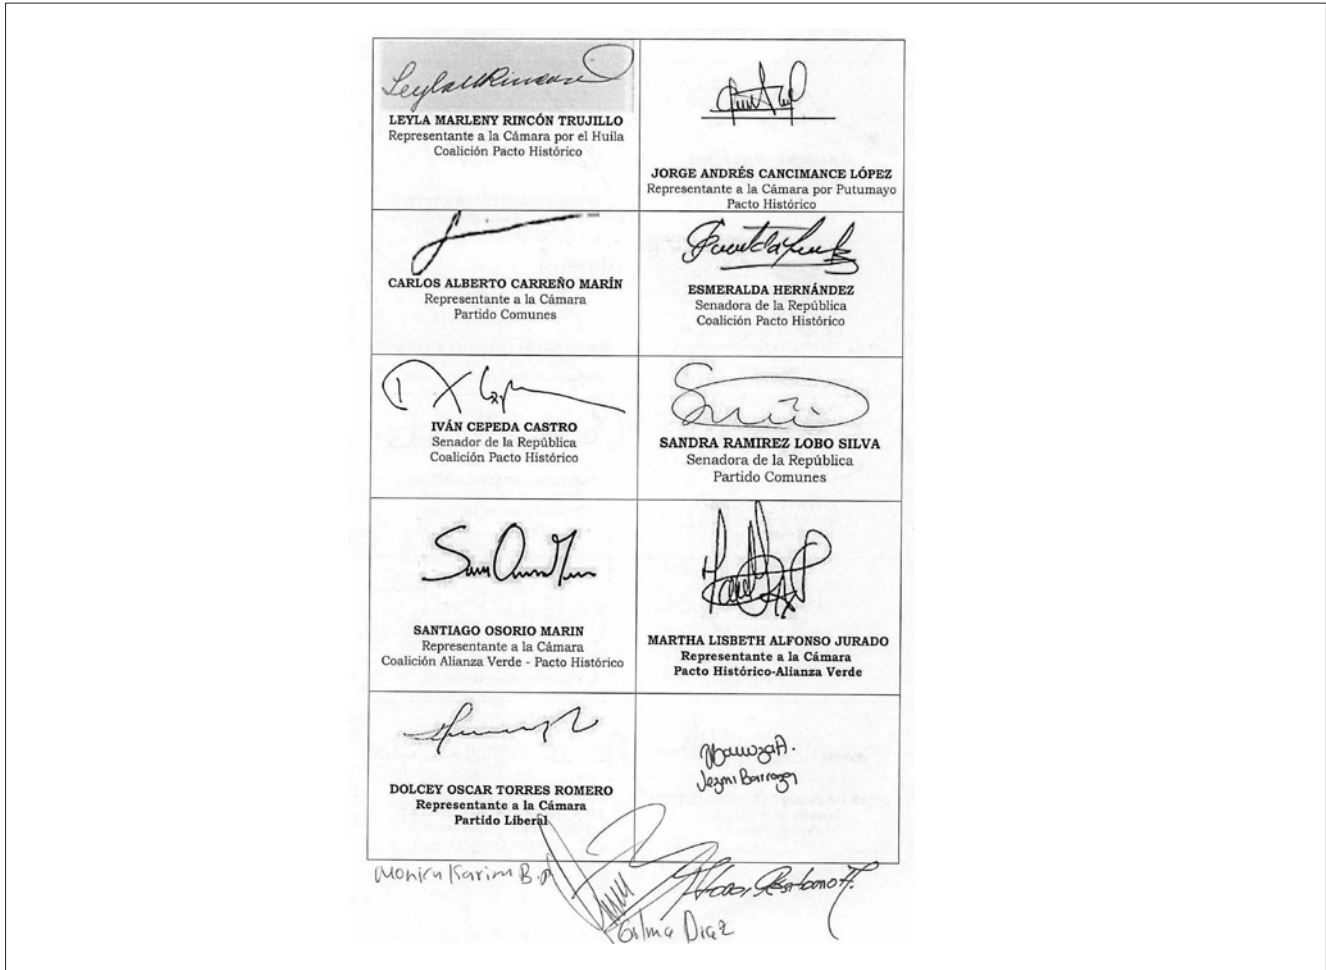 LEYLA MARLENY RINCÓN TRUJILLO
Representante a la Cámara por el Huila
Coalición Pacto Histórico
JORGE ANDRÉS CANCIMANCE LÓPEZ
Representante a la Cámara por Putumayo
Pacto Histórico
CARLOS ALBERTO CARREÑO MARÍN
Representante a la Cámara
Partido Comunes
ESMERALDA HERNÁNDEZ
Senadora de la República
Coalición Pacto Histórico
IVÁN CEPEDA CASTRO
Senador de la República
Coalición Pacto Histórico
SANDRA RAMIREZ LOBO SILVA
Senadora de la República
Partido Comunes
SANTIAGO OSORIO MARIN
Representante a la Cámara
Coalición Alianza Verde - Pacto Histórico
MARTHA LISBETH ALFONSO JURADO
Representante a la Cámara
Pacto Histórico-Alianza Verde
DOLCEY OSCAR TORRES ROMERO
Representante a la Cámara
Partido Liberal
Yezmi Barraza
Monica Karina B.
Gilma Diaz